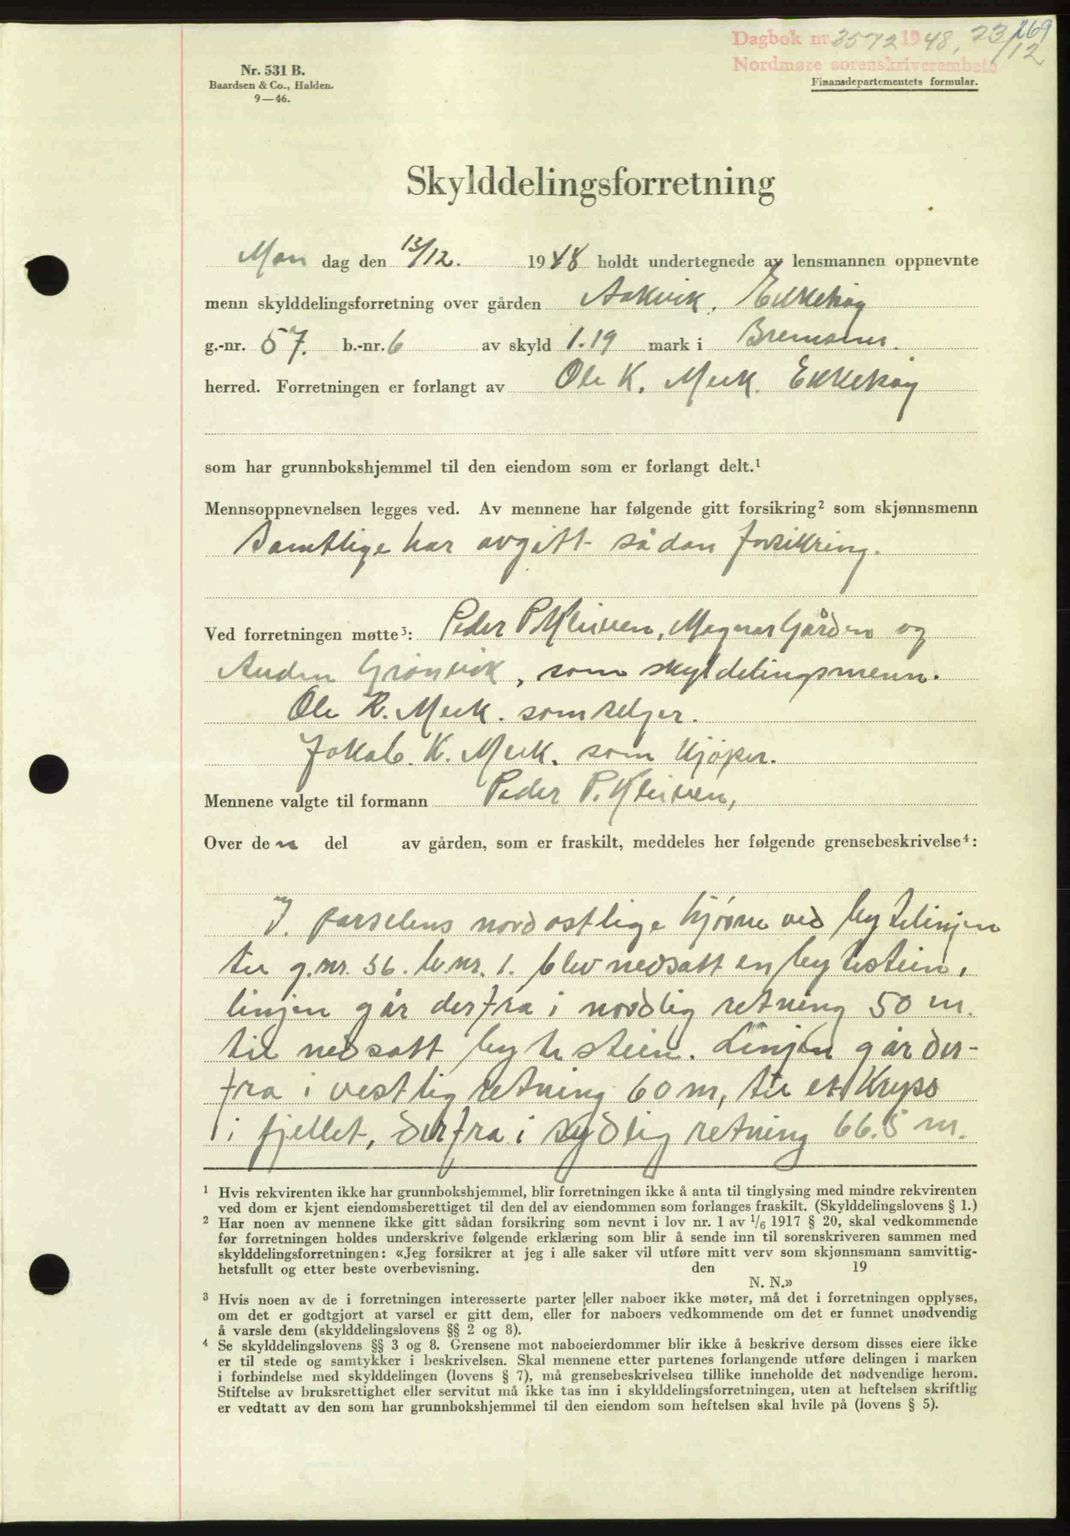 269
Dagbok nr. 3572 1948, 23/12
Nordmøre sorenskriverembete
Nr. 531 B.
Baardsen & Co., Halden.
9—46.
Finansdepartementets formular.
Skylddelingsforretning
Man dag den 13/12. 1948 holdt undertegnede av lensmannen oppnevnte
menn skylddelingsforretning over gården Aakvik, Ekkehøy
g.-nr. 57. b.-nr. 6 av skyld 1.19 mark i Bremsnes.
herred. Forretningen er forlangt av Ole K. Merk. Ekkehøy
som har grunnbokshjemmel til den eiendom som er forlangt delt.¹
Mennsoppnevnelsen legges ved. Av mennene har følgende gitt forsikring² som skjønnsmenn
Samtlige har avgitt sådan forsikring.
Ved forretningen møtte³: Peder P. Kleiven, Magnar Gården og
Anders Grønvik, som skyldelingsmenn.
Ole K. Merk. som selger.
Jakob. K. Merk. som kjøper.
Mennene valgte til formann Peder P. Kleiven,
Over den del av gården, som er fraskilt, meddeles her følgende grensebeskrivelse⁴:
I. parselens nordostlige hjørne ved bytelinjen
til g.nr. 56. b.nr. 1. blev nedsatt en bytestein,
linjen går derfra i nordlig retning 50 m.
til nedsatt bytestein. Linjen går der-
fra i vestlig retning 60 m, til et Kryss
i fjellet, derfra i sydlig retning 66.5 m.
¹ Hvis rekvirenten ikke har grunnbokshjemmel, blir forretningen ikke å anta til tinglysing med mindre rekvirenten
ved dom er kjent eiendomsberettiget til den del av eiendommen som forlanges fraskilt. (Skylddelingslovens § 1.)
² Har noen av mennene ikke gitt sådan forsikring som nevnt i lov nr. 1 av 1/6 1917 § 20, skal vedkommende
før forretningen holdes underskrive følgende erklæring som blir å sende inn til sorenskriveren sammen med
skylddelingsforretningen: «Jeg forsikrer at jeg i alle saker vil utføre mitt verv som skjønnsmann samvittig-
hetsfullt og etter beste overbevisning. den 19
N. N.»
³ Hvis noen av de i forretningen interesserte parter eller naboer ikke møter, må det i forretningen opplyses,
om det er godtgjort at varsel er gitt dem, eller for naboers vedkommende om det er funnet unødvendig
å varsle dem (skylddelingslovens §§ 2 og 8).
⁴ Se skylddelingslovens §§ 3 og 8. Grensene mot naboeierdommer blir ikke å beskrive dersom disses eiere ikke
er til stede og samtykker i beskrivelsen. Skal mennene etter partenes forlangende utføre delingen i marken
i forbindelse med skylddelingen (lovens § 7), må grensebeskrivelsen tillike inneholde det nødvendige herom.
Stiftelse av bruksrettighet eller servitut må ikke tas inn i skylddelingsforretningen, uten at heftelsen skriftlig
er vedtatt av den som har grunnbokshjemmel til den eiendom som heftelsen skal hvile på (lovens § 5).